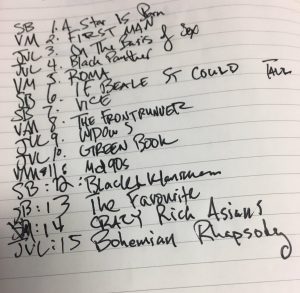 SB 1. A Star Is Born
VM 2. FIRST MAN
JVL 3. On The Basis of Sex
JVL 4. Black Panther
VM 5. ROMA
SB 6. IF BEALE ST COULD TALK
SB 7. VICE
VM 8. THE FRONTRUNNER
JVL 9. WIDOWS
JVL 10. GREEN BOOK
VM 11. Mid90s
SB: 12: BlacKkKlansman
SB: 13 The Favourite
14 CRAZY Rich Asians
JVL: 15 Bohemian Rhapsody